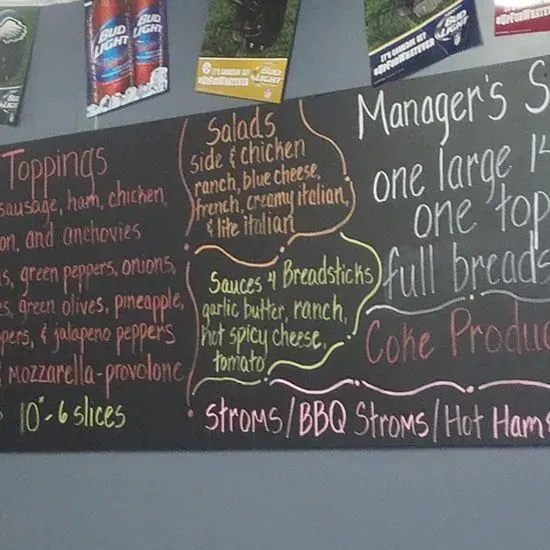 BUD LIGHT
BUD LIGHT
BUD LIGHT
#UPFORWHATEVER
BUD LIGHT
IT'S GAMEDAY. GET
#UPFORWHATEVER
#UPFORWHATEVER
Toppings
sausage, ham, chicken,
on, and anchovies
s, green peppers, onions,
es, green olives, pineapple,
ppers, & jalapeno peppers
& Mozzarella-provolone
10"-6 slices
Salads
side & chicken
ranch, blue cheese,
french, creamy italian,
& lite italian
Sauces 4 Breadsticks
garlic butter, ranch,
hot spicy cheese,
tomato
Manager's S
one large 14
one top
full breads
Coke Produc
Stroms/BBQ Stroms/Hot Hams